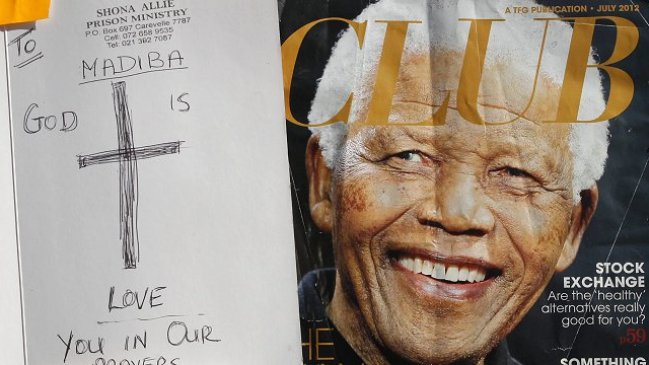 SHONA ALLIE
PRISON MINISTRY
P.O Box 697 Carevelle 7787
Cell: 072 658 9535
Tel: 021 392 7087
TO
MADIBA
GOD IS
LOVE
YOU IN OUR
PRAYERS
A TFG PUBLICATION • JULY 2012
CLUB
STOCK
EXCHANGE
Are the 'healthy'
alternatives really
good for you?
p59
SOMETHING